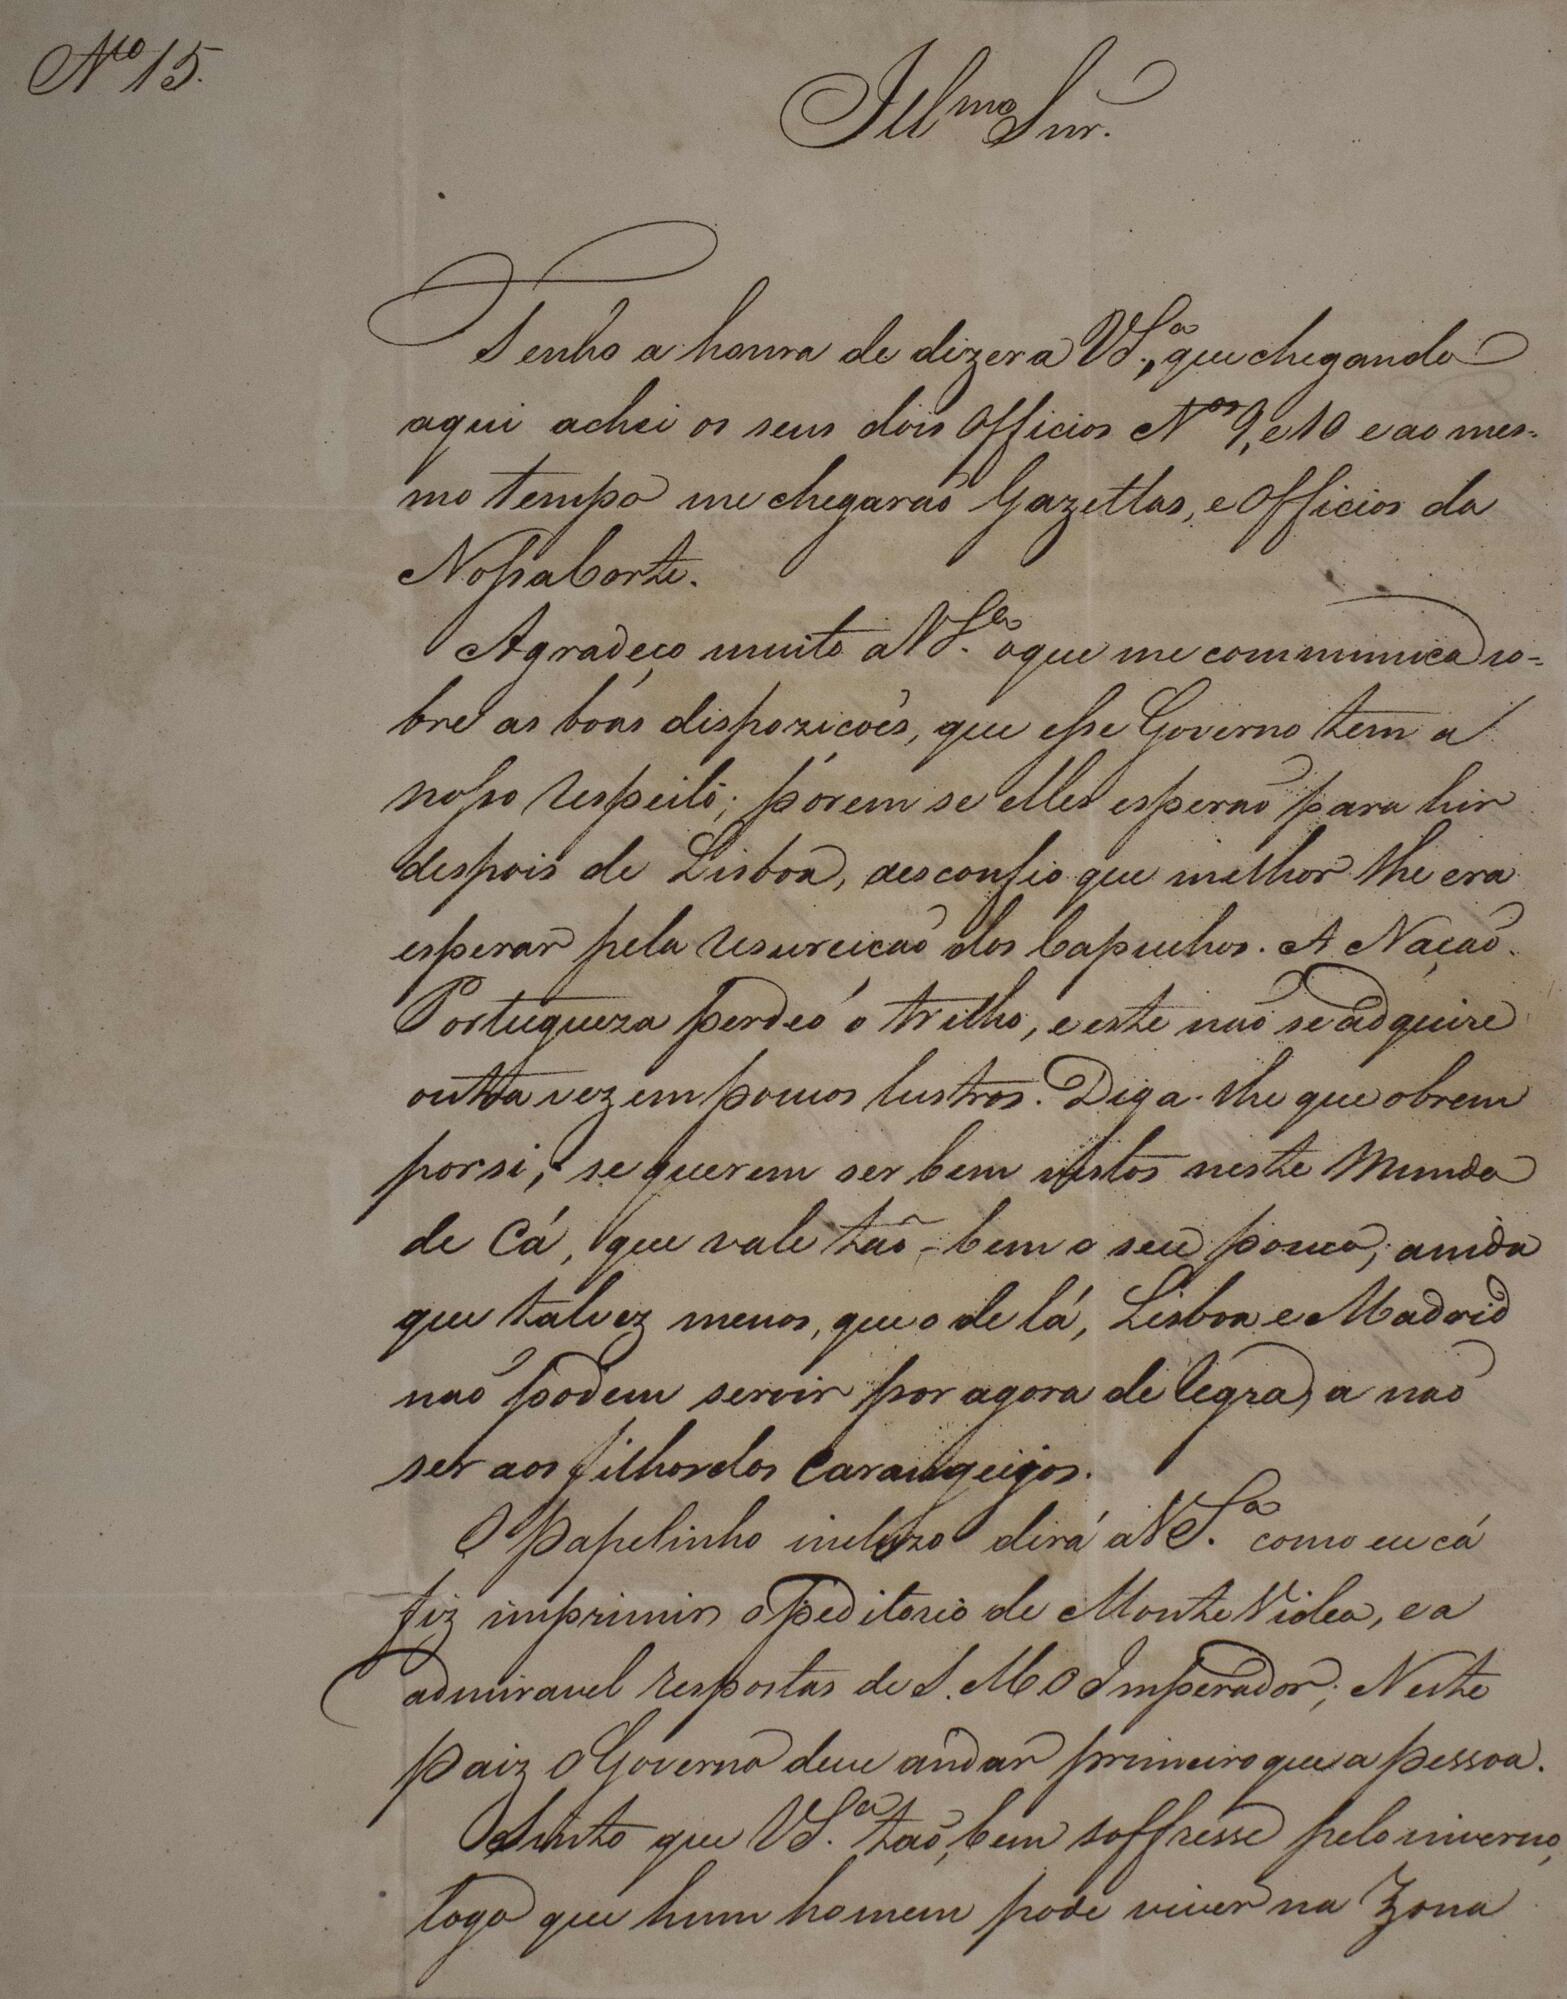 Nto 15.
Illmo Snr.
Tenho a honra de dizer a VSa., que chegando
aqui achei os seus dois Officios Nos 9, e 10 e ao mes-
mo tempo me chegaraõ Gazettas, e Officios da
Nossa Corte.
Agradeço muito a VSa. o que me communica so-
bre as bóas dispozicoẽs, que esse Governo tem a
nosso respeito; porem se elles esperaõ para hir
despois de Lisboa, desconfio que melhor lhe era
esperar pela resureicaõ dos Capuchos. A Naçaõ
Portugueza perdeó o trilho, e este naõ se adquire
outra vez em poucos lustros. Diga-lhe que obrem
por si, se querem ser bem vistos neste Mundo
de Cá, que vale taõ-bem o seu pouco, ainda
que talvez menos, que o de lá, Lisboa e Madrid
naõ podem servir por agora de regra, a naõ
ser aos filhos dos Carangueijos.
O Papelinho incluzo dirá a VSa. como eu cá
fiz imprimir o peditorio de Monte Video, e a
admiravel respostas de S. M. O Imperador; Neste
paiz o Governo deve andar primeiro que a pessoa.
Sinto que VSa. taõ bem soffresse pelo inverno,
logo que hum homem pode viver na Zona